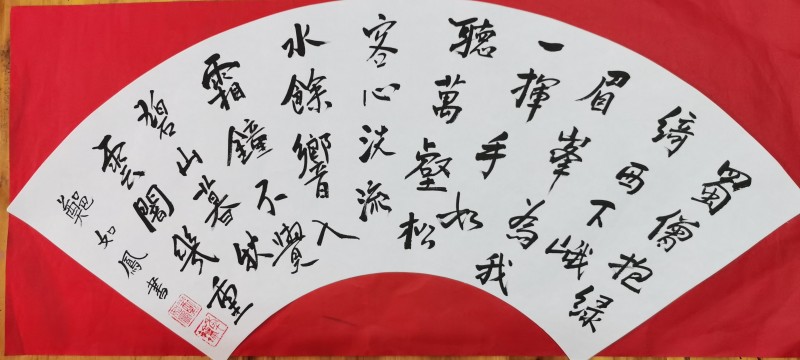 蜀僧抱綠
綺西下峨
眉峯為我
一揮手如
聽萬壑松
客心洗流
水餘響入
霜鐘不覺
碧山暮秋
雲闇幾重
如鳳書